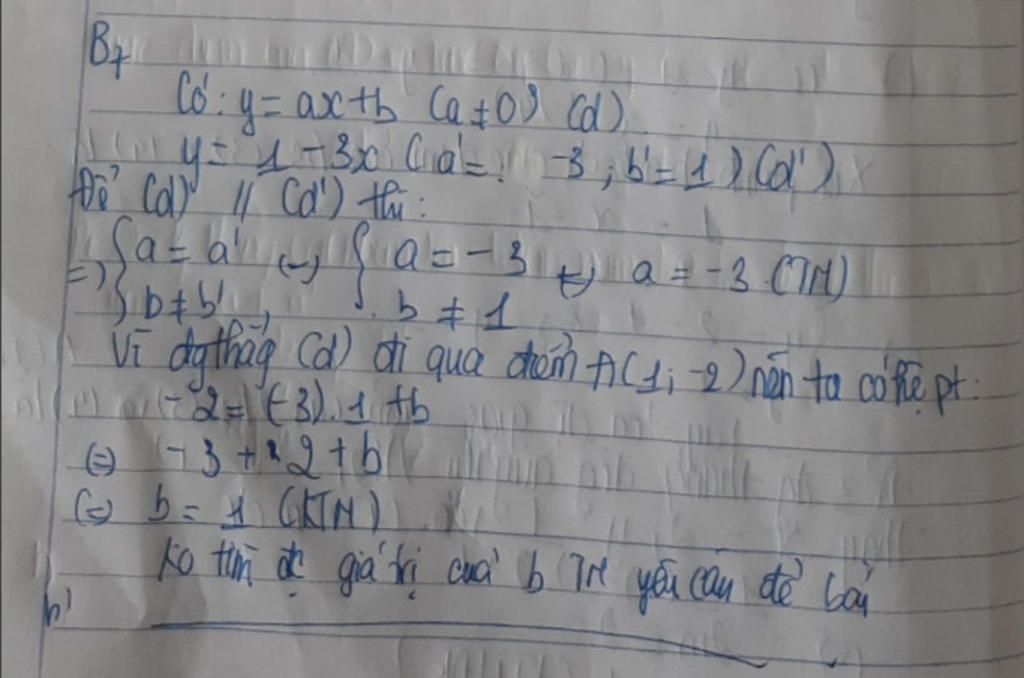 B7
Có: y = ax+b (a ≠ 0) (d)
y = 1 - 3x ( a' = -3 ; b' = 1 ) (d')
Để (d) // (d') thì:
=> { a = a' <=> { a = -3 <=> a = -3 (TM)
b ≠ b' b ≠ 1
Vì đg thẳg (d) đi qua điểm A(1; -2) nên ta có hệ pt:
-2 = (-3).1 + b
(=) -3 + 2 + b
(=) b = 1 (KTM)
Ko tìm đc giá trị của b TM yêu cầu đề bài